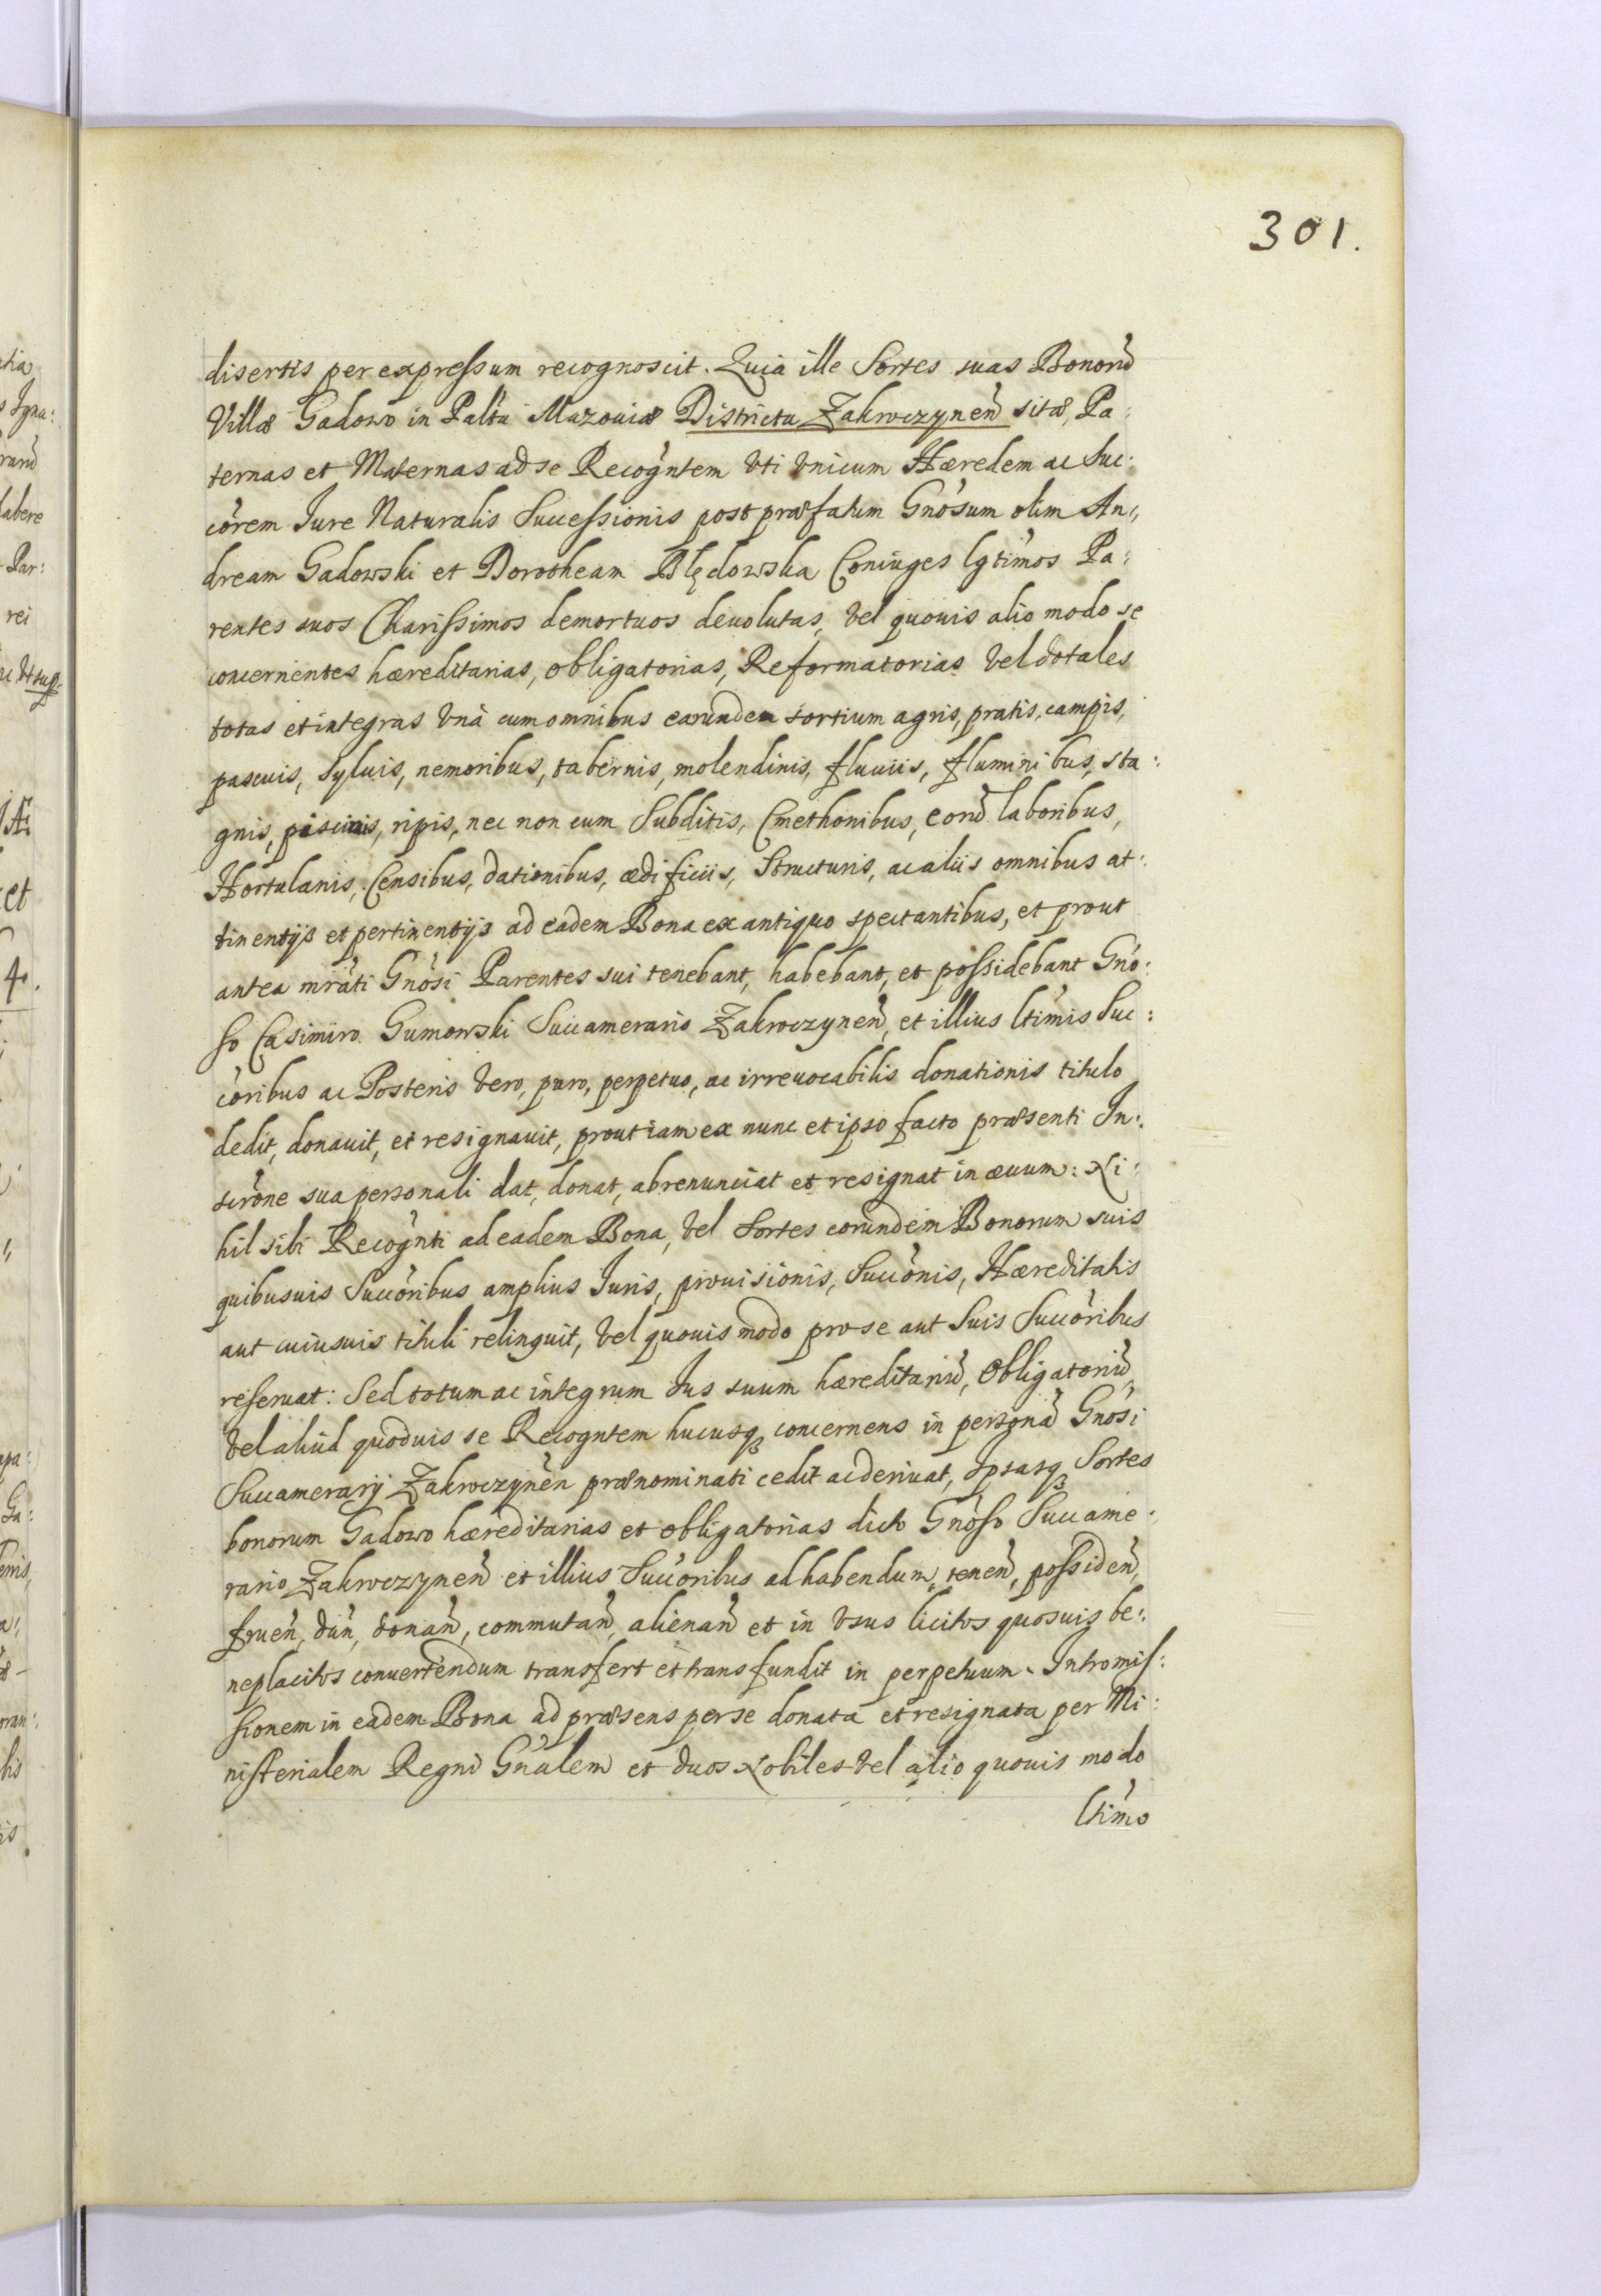 301.
disertis per expressum recognoscit. Quia ille Sortes suas Bonorũ
Villæ Gadowo in Paltu Mazouiæ Districtu Zakroczynen̄ sitæ, Pa:
ternas et Maternas ad se Recogntem Vti Vnicum Hæredem ac Suc:
cōrem Jure Naturalis Successionis post præfatum Gnōsum olim An:
dream Gadowski et Dorotheam Blędowska Coniuges lgtimos Pa:
rentes suos Charissimos demortuos deuolutas, Vel quouis alio modo se
concernentes hæreditarias, obligatorias, Reformatorias Vel dotales
totas et integras Vnà cum omnibus earundem sortium agris, pratis, campis,
pascuis, syluis, nemoribus, tabernis, molendinis, fluuiis, fluminibus, sta:
gnis, piscinis, ripis, nec non cum Subditis, Cmethonibus, eorũ laboribus,
Hortulanis, Censibus, dationibus, ædificiis, Structuris, ac aliis omnibus at:
tinentijs et pertinentijs ad eadem Bona ex antiquo spectantibus, et prout
antea mrāti Gnōsi Parentes sui tenebant, habebant, et possidebant Gnō:
so Casimiro Gumowski Succamerario Zakroczynen̄, et illius ltimis Suc:
cōribus ac Posteris Vero, puro, perpetuo, ac irreuocabilis donationis titulo
dedit, donauit, et resignauit, prout iam ex nunc et ipso facto præsenti In:
scrōne sua personali dat, donat, abrenunciat et resignat in æuum: Ni:
hil sibi Recognti ad eadem Bona, Vel Sortes eorundem Bonorum suis
quibusuis Succōribus amplius Juris, prouisionis, Succōnis, Hæreditatis
aut cuiusuis tituli relinquit, Vel quouis modo pro se aut Suis Succōribus
reseruat: Sed totum ac integrum Jus suum hæreditariũ, Obligatoriũ,
Vel aliud quoduis se Recogntem hucusq; concernens in personã Gnōsi
Succamerarij Zakroczynēn prænominati cedit ac deriuat, Ipsasq; Sortes
bonorum Gadowo hæreditarias et obligatorias dicto Gnōso Succame:
rario Zakroczynen̄ et illius Succōribus ad habendum, tenen̄, possiden̄,
fruen̄, dan̄, donan̄, commutan̄, alienan̄ et in Vsus licitos quosuis be:
neplacitos conuertendum transfert et transfundit in perpetuum. Intromis:
sionem in eadem Bona ad præsens per se donata et resignata per Mi:
nisterialem Regni Gnālem et duos Nobiles Vel alio quouis modo
ltimo